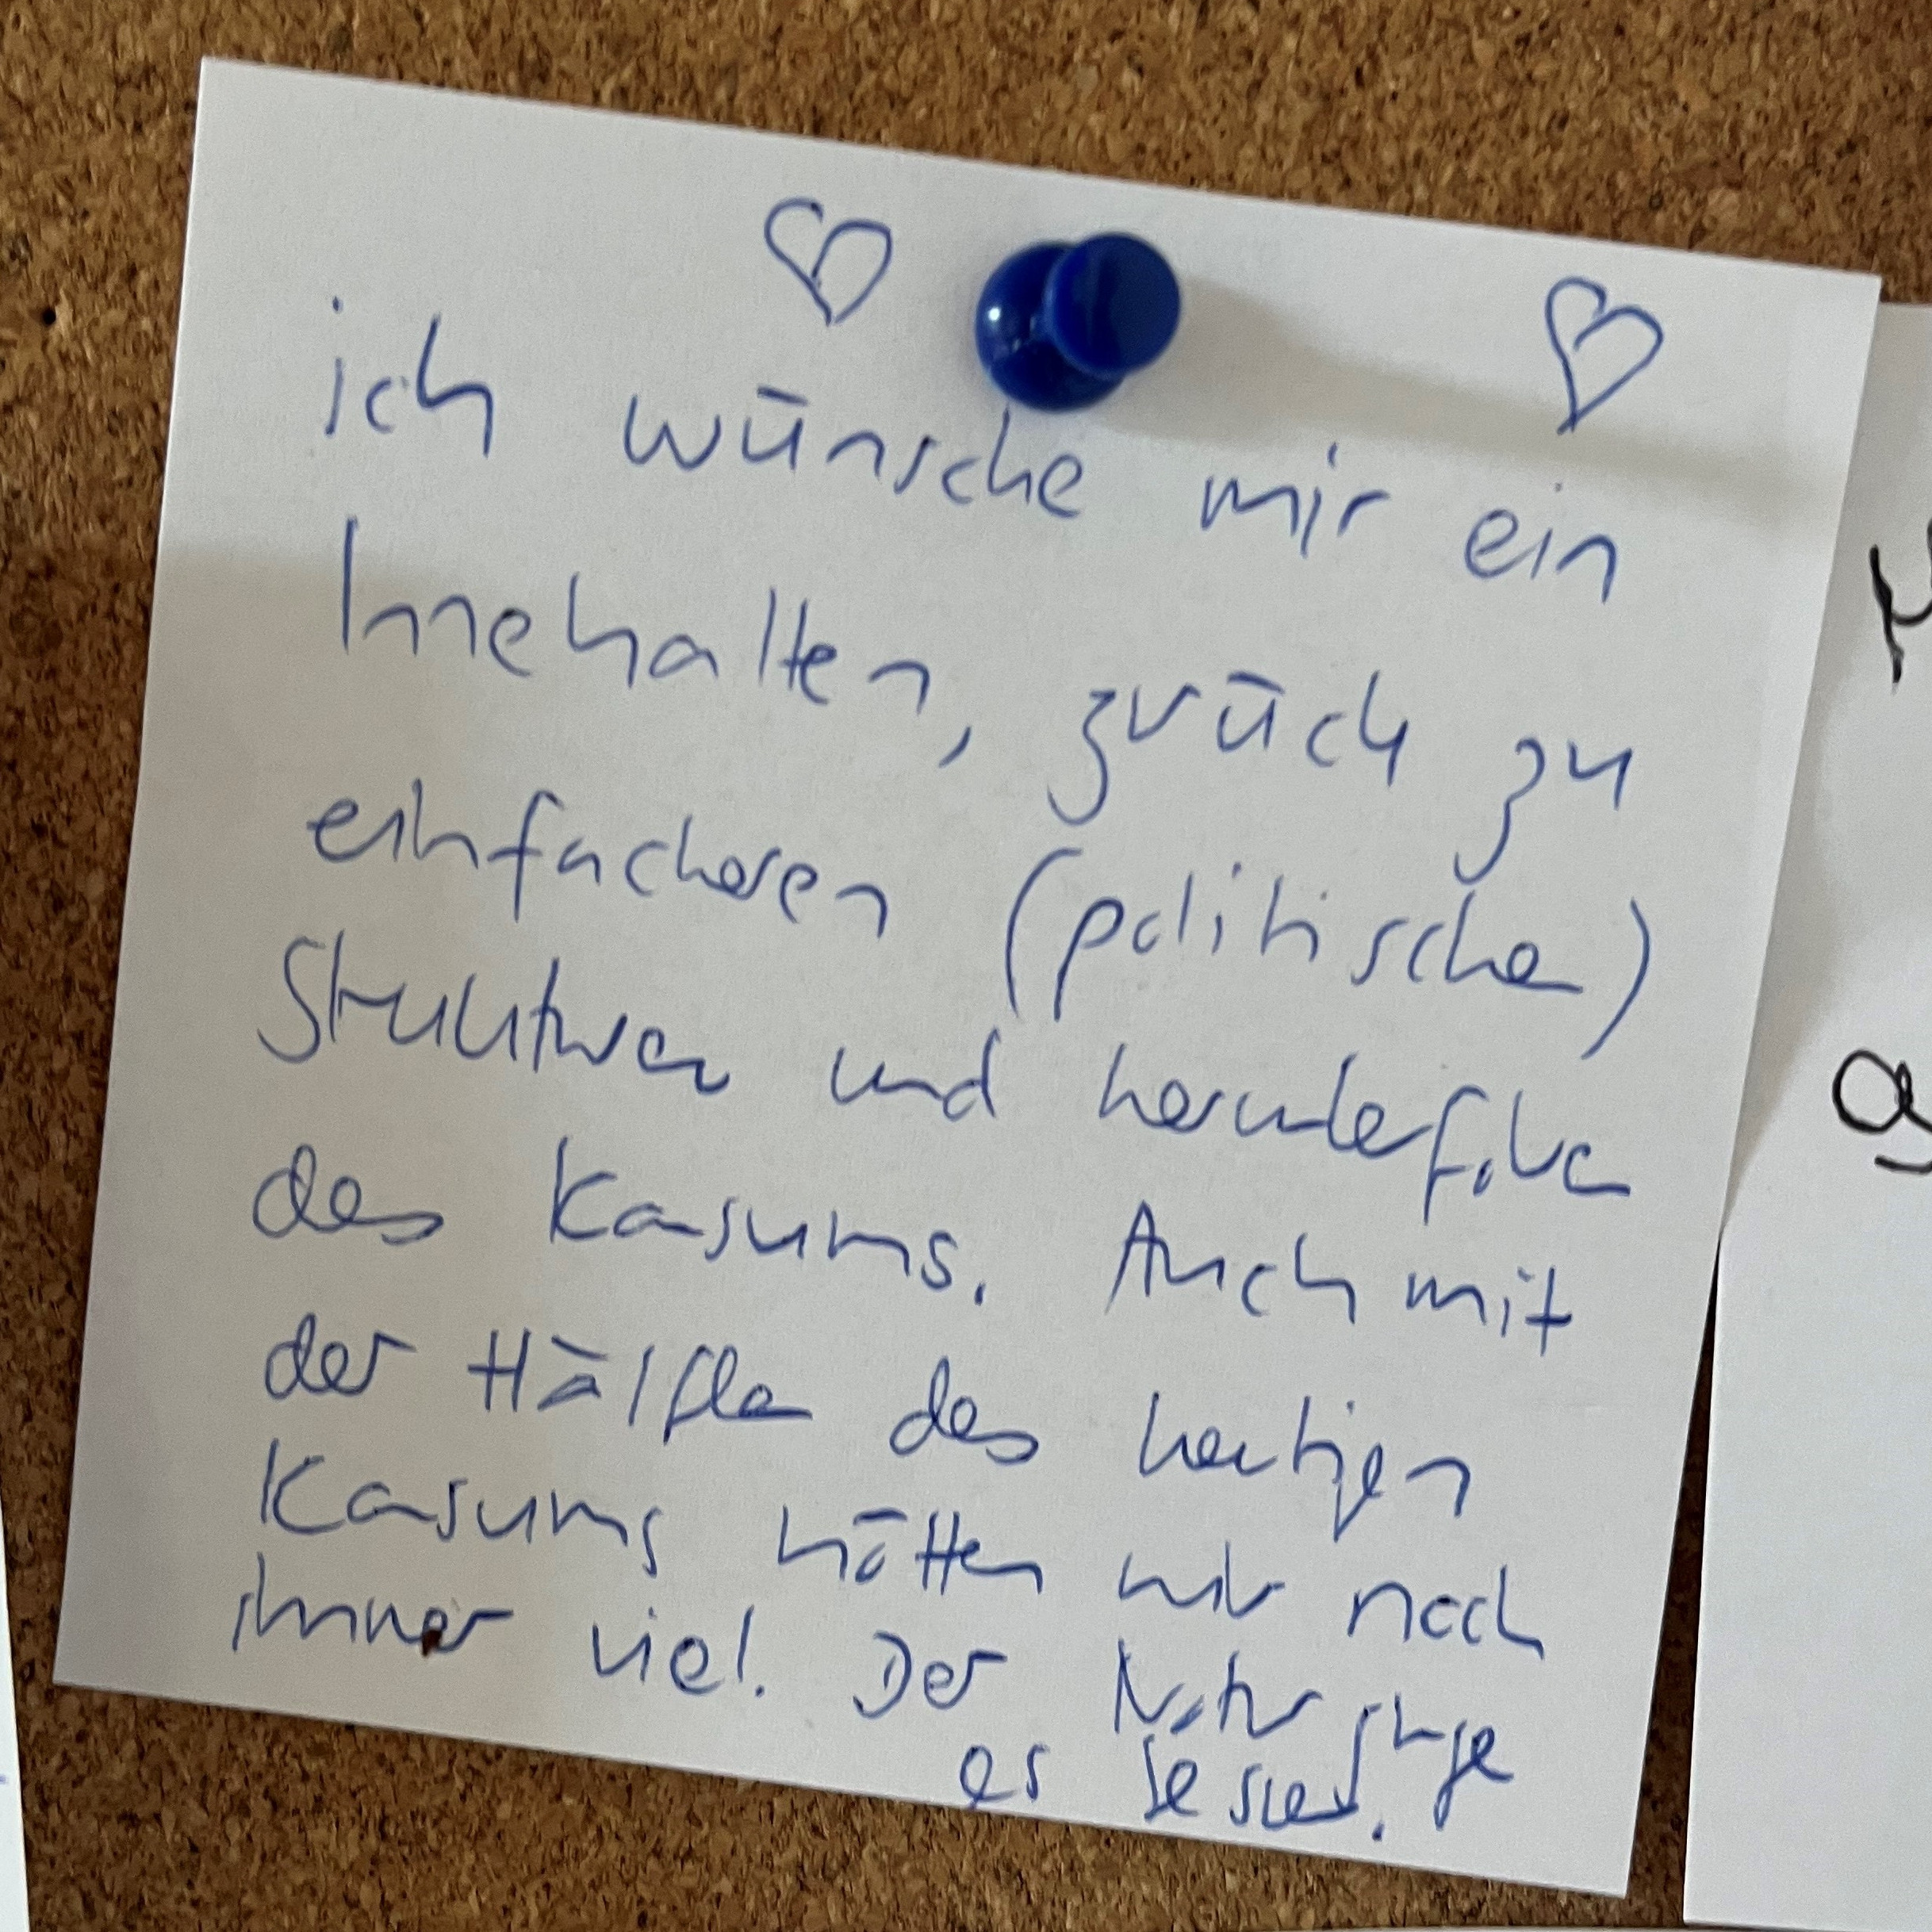 ich wünsche mir ein
Innehalten, zurück zu
einfacheren (politischen)
Strukturen und herunterfahren
des Konsums. Auch mit
der Hälfte des heutigen
Konsums hätten wir noch
immer viel. Der Natur ginge
es besser.